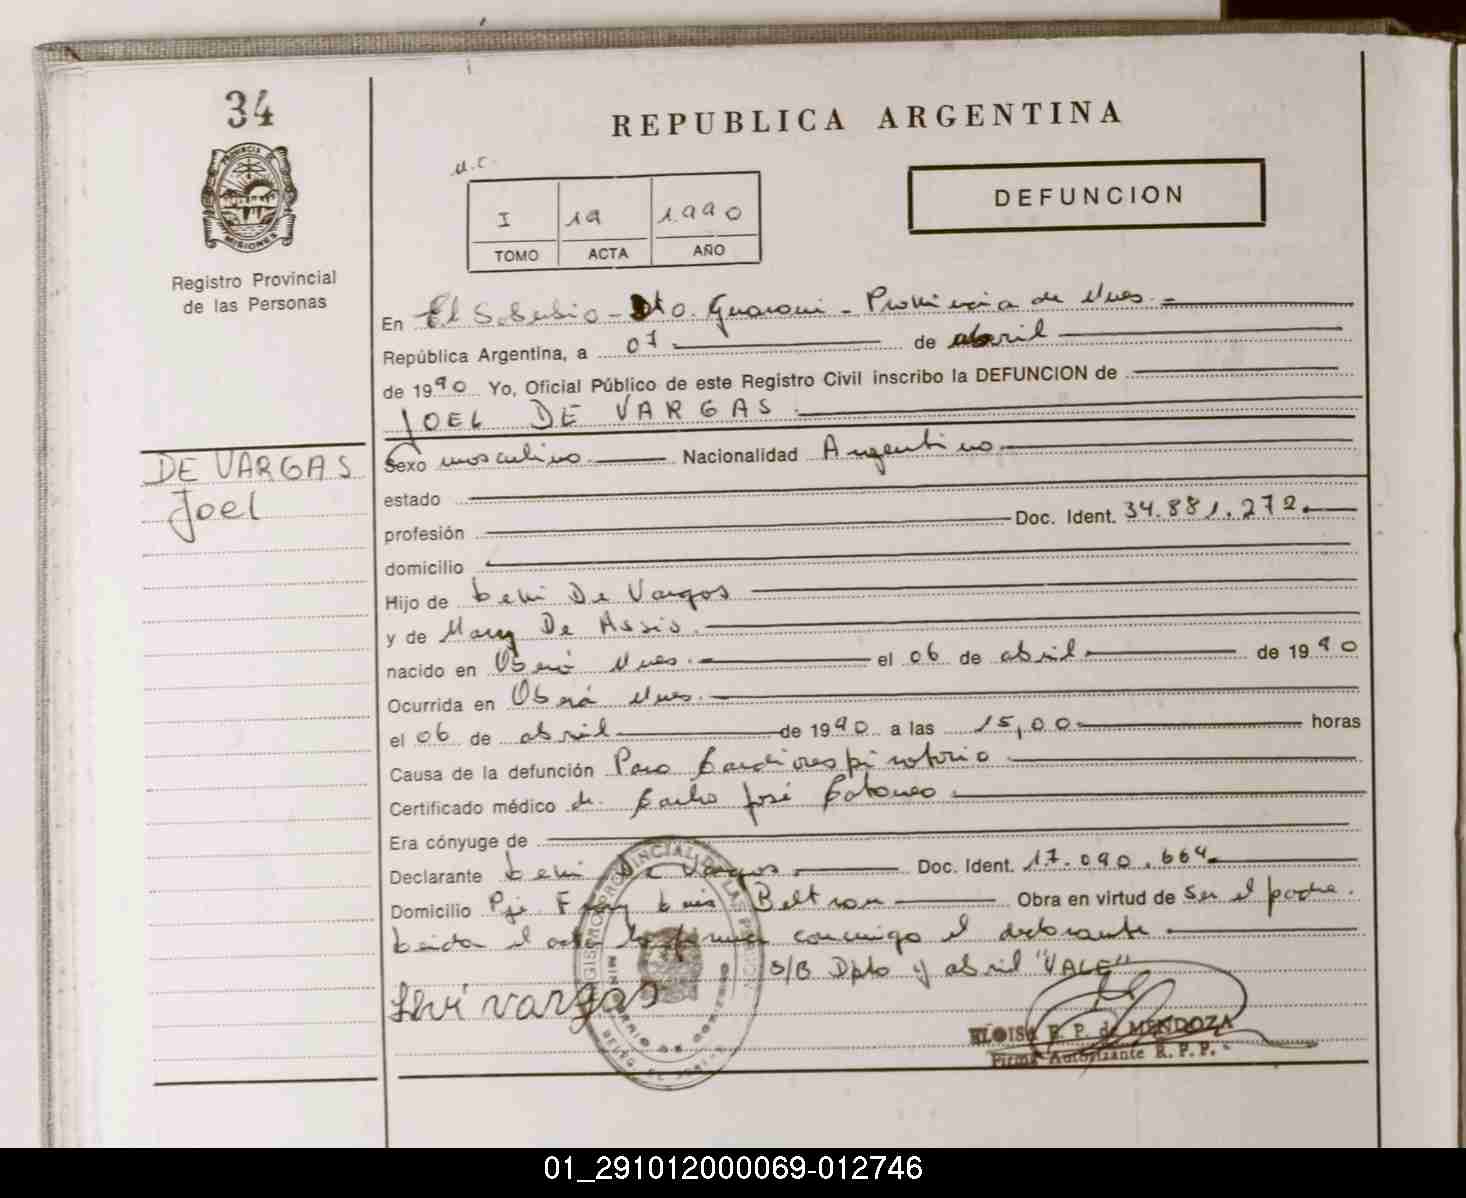 34
REPUBLICA ARGENTINA
PROVINCIA DE
MISIONES
Registro Provincial
de las Personas
u.c.
I 19 1990
TOMO ACTA AÑO
DEFUNCION
En El Soberbio - Dto. Guarani - Provincia de Mnes.
República Argentina, a 07 de abril
de 1990 Yo, Oficial Público de este Registro Civil inscribo la DEFUNCION de
JOEL DE VARGAS
DE VARGAS
Joel
Sexo masculino Nacionalidad Argentino
estado
profesión Doc. Ident. 34.881.272.
domicilio
Hijo de Levi De Vargas
y de Mary De Assis.
nacido en Oberá Mnes. el 06 de abril de 1990
Ocurrida en Oberá Mnes.
el 06 de abril de 1990 a las 15,00 horas
Causa de la defunción Paro Cardiorespiratorio
Certificado médico dr. Carlos José
Era cónyuge de
Declarante Levi De Vargas Doc. Ident. 17.090.664
Domicilio Pje Fray Luis Beltran Obra en virtud de Ser el padre.
Leida el acta la firma conmigo el declarante
S/B Dpto y abril "VALE"
Levi vargas
ELOISA R. P. de MENDOZA
Firma Autorizante R. P. P.
01_291012000069-012746